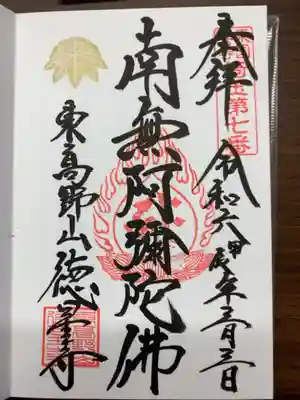 奉拝
第七番
令和六甲辰年三月三日
南無阿彌陀佛
東高野山徳星寺